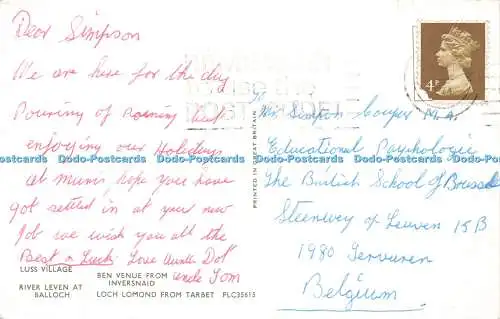 Dear Simpson
We are here for the day
Pouring of Raining but
enjoying our Holidays
at Mum's, hope you have
got settled in at your new
Job we wish you all the
Best o Luck. Love Aunt Dot
uncle Tom
LUSS VILLAGE
BEN VENUE FROM INVERSNAID
RIVER LEVEN AT BALLOCH
LOCH LOMOND FROM TARBET PLC35615
PRINTED IN GREAT BRITAIN
4P
To
Mr. Simpson Couper M.A.
Educational Psychologic
The British School of Brussel
Steenweg of Leuven 19B
1980 Tervuren
Belgium
Postcards-Download Postcards-Download Postcards-Download Postcards-Download Postcards-Download